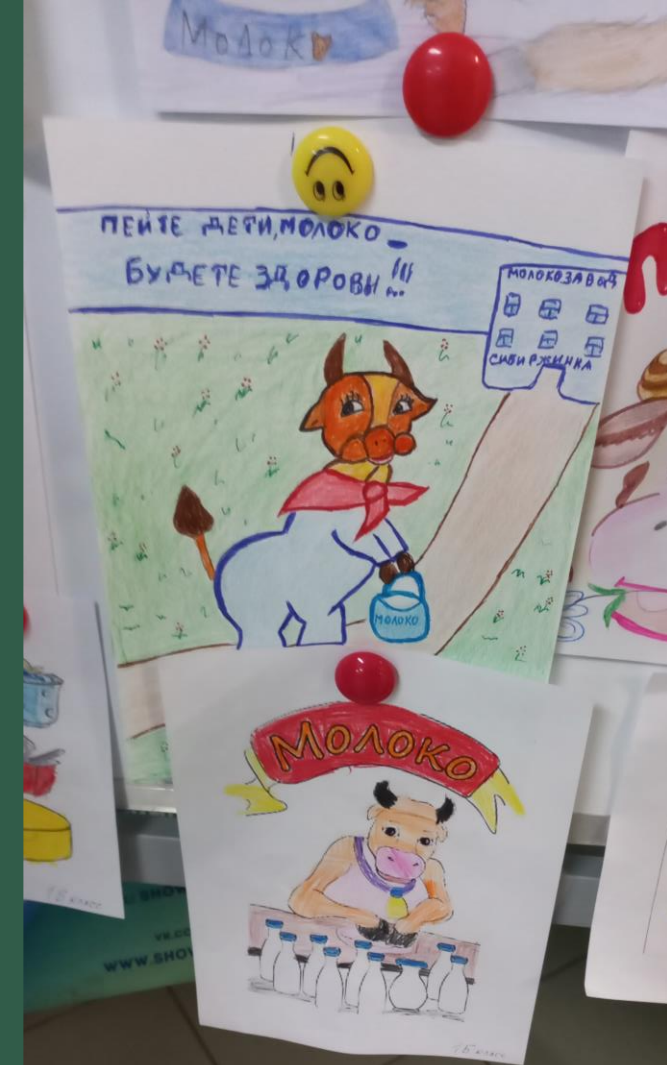 Молоко
ПЕЙТЕ ДЕТИ, МОЛОКО _
БУДЕТЕ ЗДОРОВЫ!!!
МОЛОКОЗАВОД
СИБИРЖИНКА
МОЛОКО
МОЛОКО
1В класс
WWW.SHOW
1Б класс